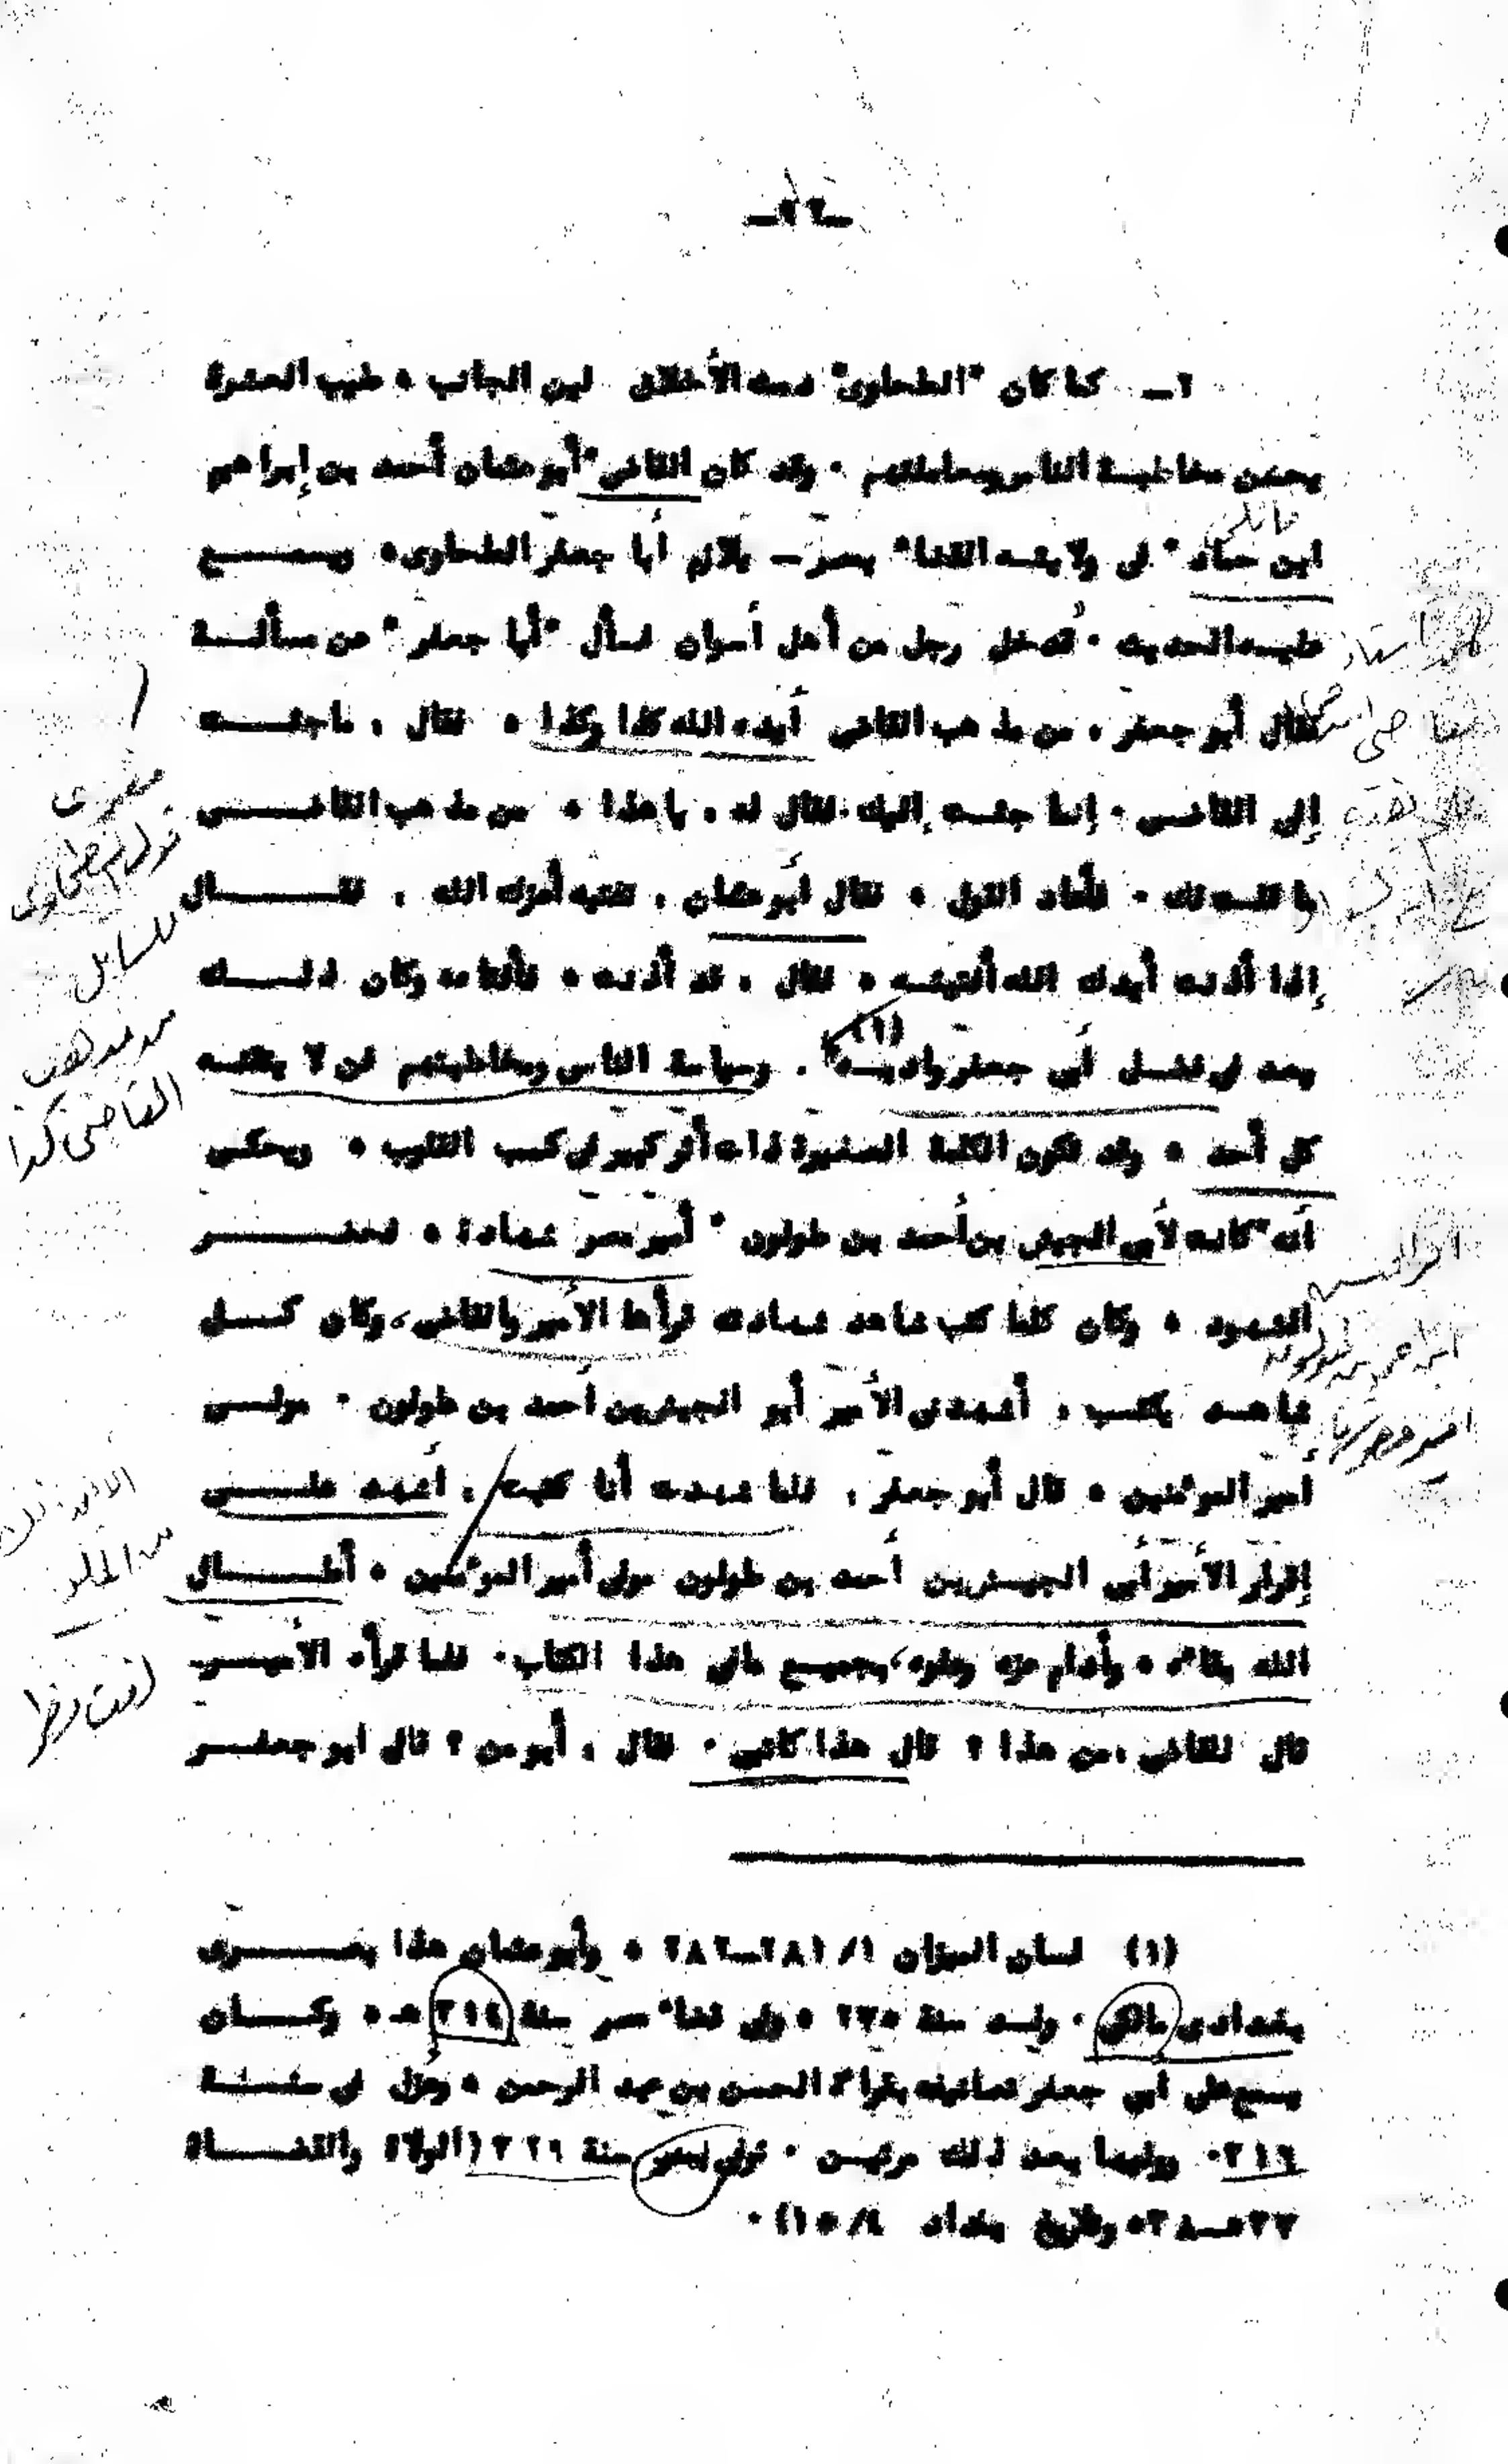 ـ٢٢ـ
٢ـ كما كان "الطحاوى" دمث الأخلاق لين الجانب ، طيب العشرة
يحسن مخاطبة الناس ومعاملتهم ٠ وقد كان القاضى "أبو عثمان أحمد بن إبراهيم
ابن حماد " فى ولايته القضاء بمصر ــ يلازم أبا جعفر الطحاوى، ويسمع
عليه الحديث ٠ فدخل رجل من أهل أسوان فسأل "أبا جعفر " عن مسألة
فقال أبو جعفر ، من مذهب القاضى أيده الله كذا وكذا ، فقال ، ماجئت
إلى القاضى ٠ إنما جئت إليك ٠ فقال له ، ياهذا ، من مذهب القاضى
ما قلت لك ٠ فأعاد القول ، فقال أبو عثمان ، تفتيه أعزك الله ، فقال
إذا أذنت أيدك الله أفتيته ، فقال ، قد أذنت ، فأفتاه وكان ذلك
يعد فى فضل أبي جعفر وأدبه (١) ، وسياسة الناس ومخاطبتهم فن لا يتقنه
كل أحد ، وقد تكون الكلمة الصغيرة ذات أثر كبير فى كسب القلوب ، ويحكى
أنه "كانت لأبي الجيش بن أحمد بن طولون " أمير مصر شهادة ، فحضر
الشهود ، وكان كلما كتب شاهد شهادته قرأها الأمير والقاضى، وكان كل
شاهد يكتب ، أشهدنى الأمير أبو الجيش بن أحمد بن طولون ٠ مولى
أمير المؤمنين ، قال أبو جعفر ، فلما شهدت أنا كتبت ، أشهد على
إقرار الأمير أبي الجيش بن أحمد بن طولون مولى أمير المؤمنين ، أطال
الله بقاءه ، وأدام عزه وعلوه، بجميع مافى هذا الكتاب ٠ فلما قرأه الأمير
قال للقاضى ،من هذا ؟ قال هذا كاتبى ٠ فقال ، أبو من ؟ قال ابو جعفر
مصرى
للسايل
من مذهب
القاضى كذا
(١) لسان الميزان ١/ ٢٨١ــ٢٨٢ ، وأبو عثمان هذا بصرى
بغدادى مالكى ٠ ولد سنة ٢٧٥ ، ولى قضاء مصر سنة ٣١٤ هـ ، وكان
يسمع على أبي جعفر تصانيفه بقراءة الحسن بن عبد الرحمن ، وعزل فى سنة
٣١٦ ٠ ووليها بعد ذلك مرتين ٠ توفى بمصر سنة ٣٢٩ (الولاة والقضاة
٥٣٧ــ٥٣٨ وتاريخ بغداد ٤/ ١٥) ٠